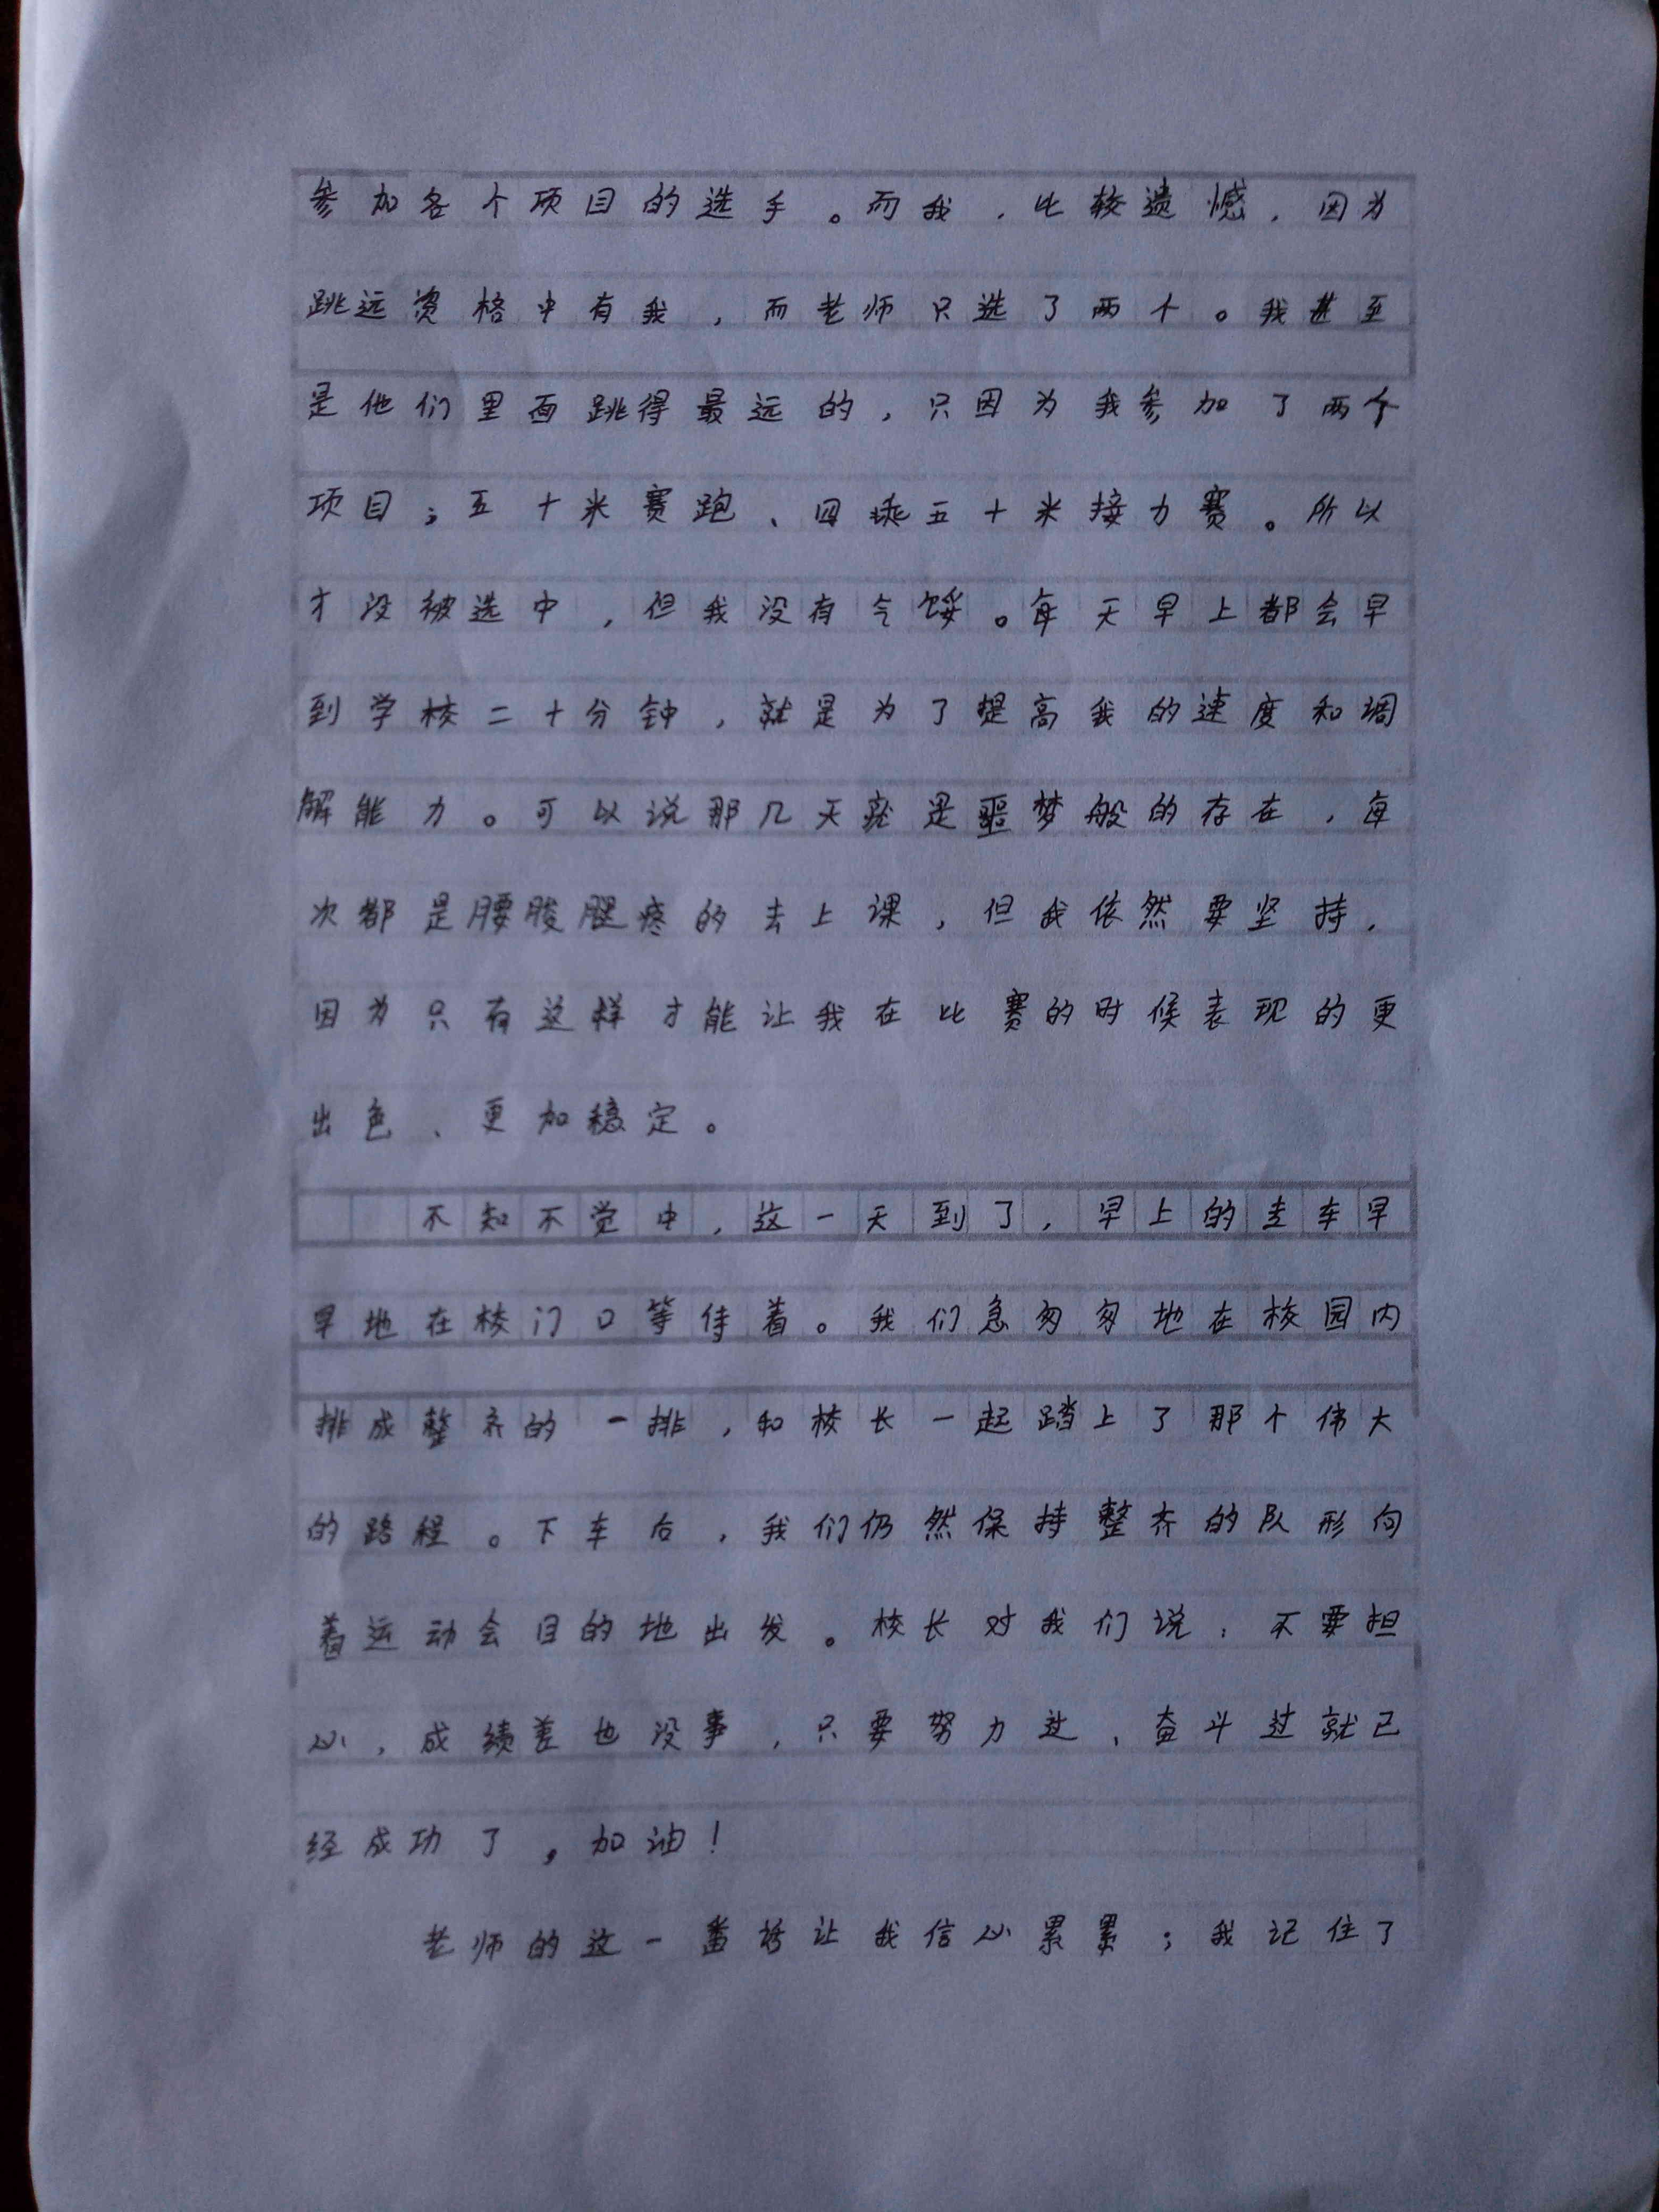 参加各个项目的选手。而我，比较遗憾，因为
跳远资格中有我，而老师只选了两个。我甚至
是他们里面跳得最远的，只因为我参加了两个
项目；五十米赛跑、四乘五十米接力赛。所以
才没被选中，但我没有气馁。每天早上都会早
到学校二十分钟，就是为了提高我的速度和调
解能力。可以说那几天就是噩梦般的存在，每
次都是腰酸腿疼的去上课，但我依然要坚持，
因为只有这样才能让我在比赛的时候表现的更
出色、更加稳定。
不知不觉中，这一天到了，早上的走车早
早地在校门口等待着。我们急匆匆地在校园内
排成整齐的一排，和校长一起踏上了那个伟大
的路程。下车后，我们仍然保持整齐的队形向
着运动会目的地出发。校长对我们说：不要担
心，成绩差也没事，只要努力过、奋斗过就已
经成功了，加油！
老师的这一番话让我信心累累；我记住了